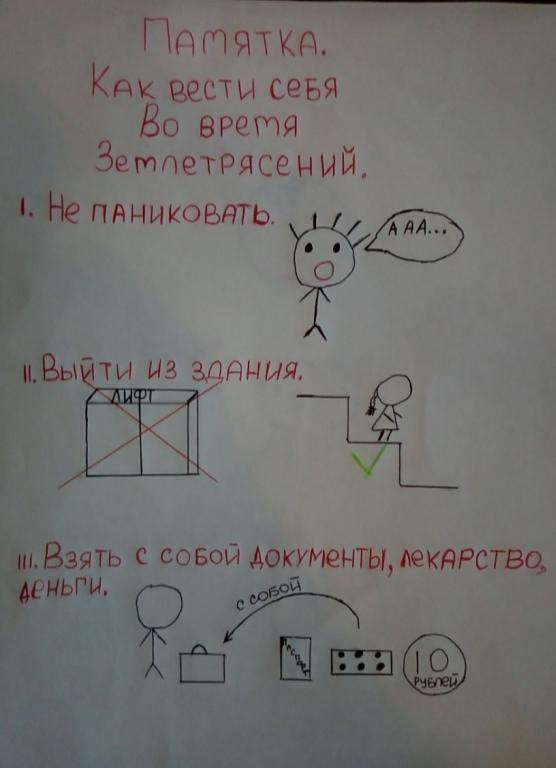 Памятка.
Как вести себя
Во время
Землетрясений.
I. Не паниковать.
А АА...
II. Выйти из здания.
ЛИФТ
III. Взять с собой документы, лекарство,
деньги.
с собой
паспорт
10
рублей